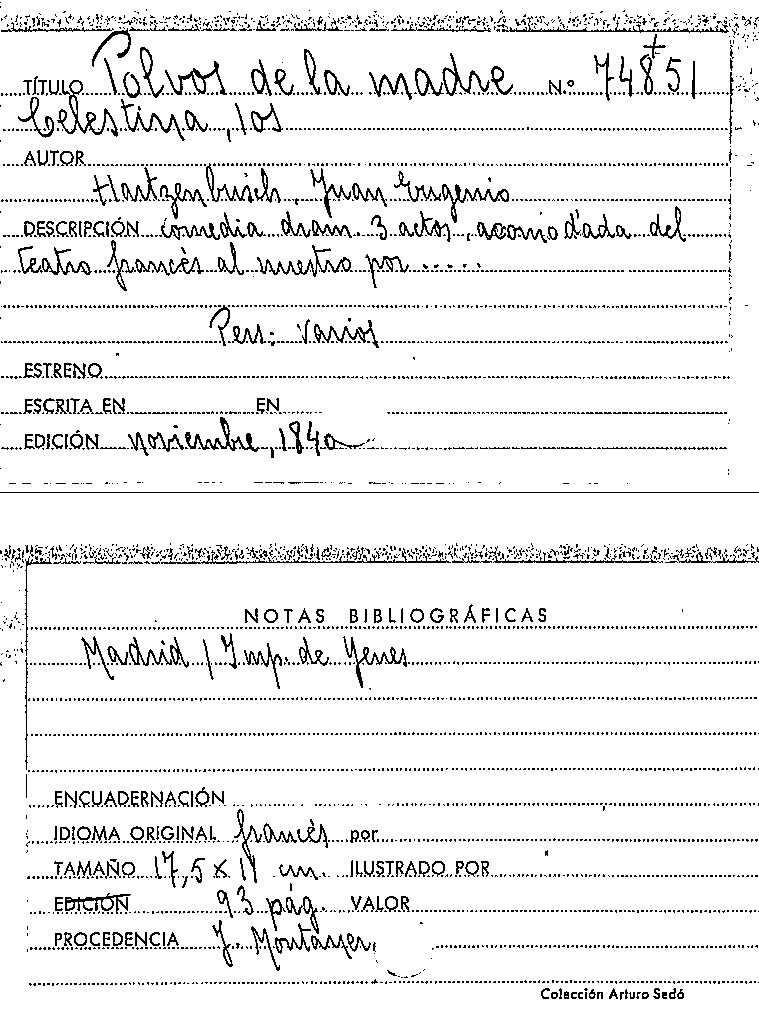 TÍTULO Polvos de la madre N.º 74851
Celestina, los
AUTOR
Hartzenbusch, Juan Eugenio
DESCRIPCIÓN comedia dram. 3 actos, acomodada del
teatro francès al nuestro por .....
Pers: varios
ESTRENO
ESCRITA EN EN
EDICIÓN noviembre, 1840
NOTAS BIBLIOGRÁFICAS
Madrid / Imp. de Yenes
ENCUADERNACIÓN
IDIOMA ORIGINAL francès por
TAMAÑO 17,5 x 11 cm. ILUSTRADO POR
EDICIÓN 93 pág. VALOR
PROCEDENCIA J. Montaner
Colección Arturo Sedó